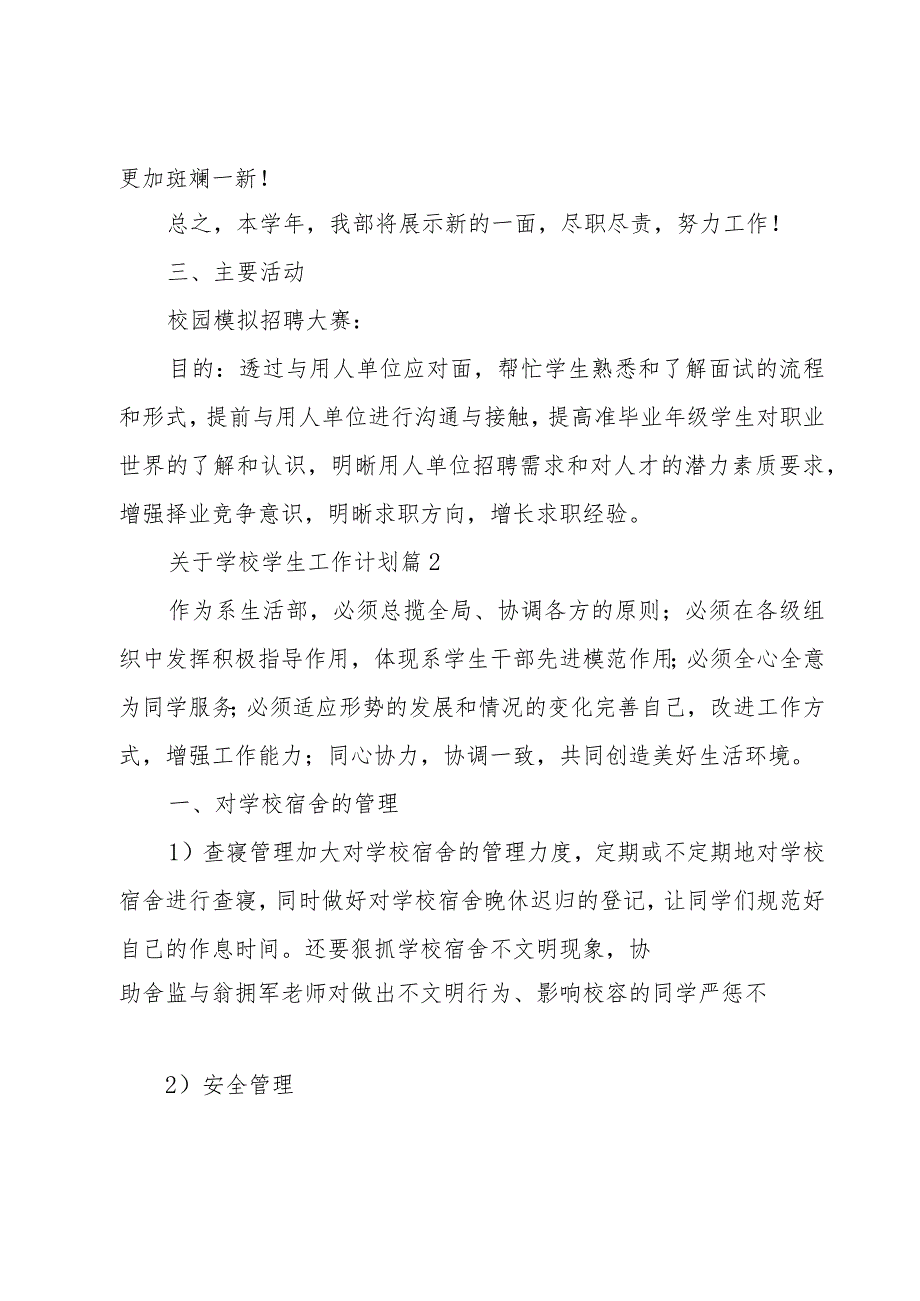 更加斑斓一新！
总之，本学年，我部将展示新的一面，尽职尽责，努力工作！
三、主要活动
校园模拟招聘大赛：
目的：透过与用人单位应对面，帮忙学生熟悉和了解面试的流程
和形式，提前与用人单位进行沟通与接触，提高准毕业年级学生对职业
世界的了解和认识，明晰用人单位招聘需求和对人才的潜力素质要求，
增强择业竞争意识，明晰求职方向，增长求职经验。
关于学校学生工作计划篇2
作为系生活部，必须总揽全局、协调各方的原则；必须在各级组
织中发挥积极指导作用，体现系学生干部先进模范作用；必须全心全意
为同学服务；必须适应形势的发展和情况的变化完善自己，改进工作方
式，增强工作能力；同心协力，协调一致，共同创造美好生活环境。
一、对学校宿舍的管理
1）查寝管理加大对学校宿舍的管理力度，定期或不定期地对学校
宿舍进行查寝，同时做好对学校宿舍晚休迟归的登记，让同学们规范好
自己的作息时间。还要狠抓学校宿舍不文明现象，协
助舍监与翁拥军老师对做出不文明行为、影响校容的同学严惩不
2）安全管理